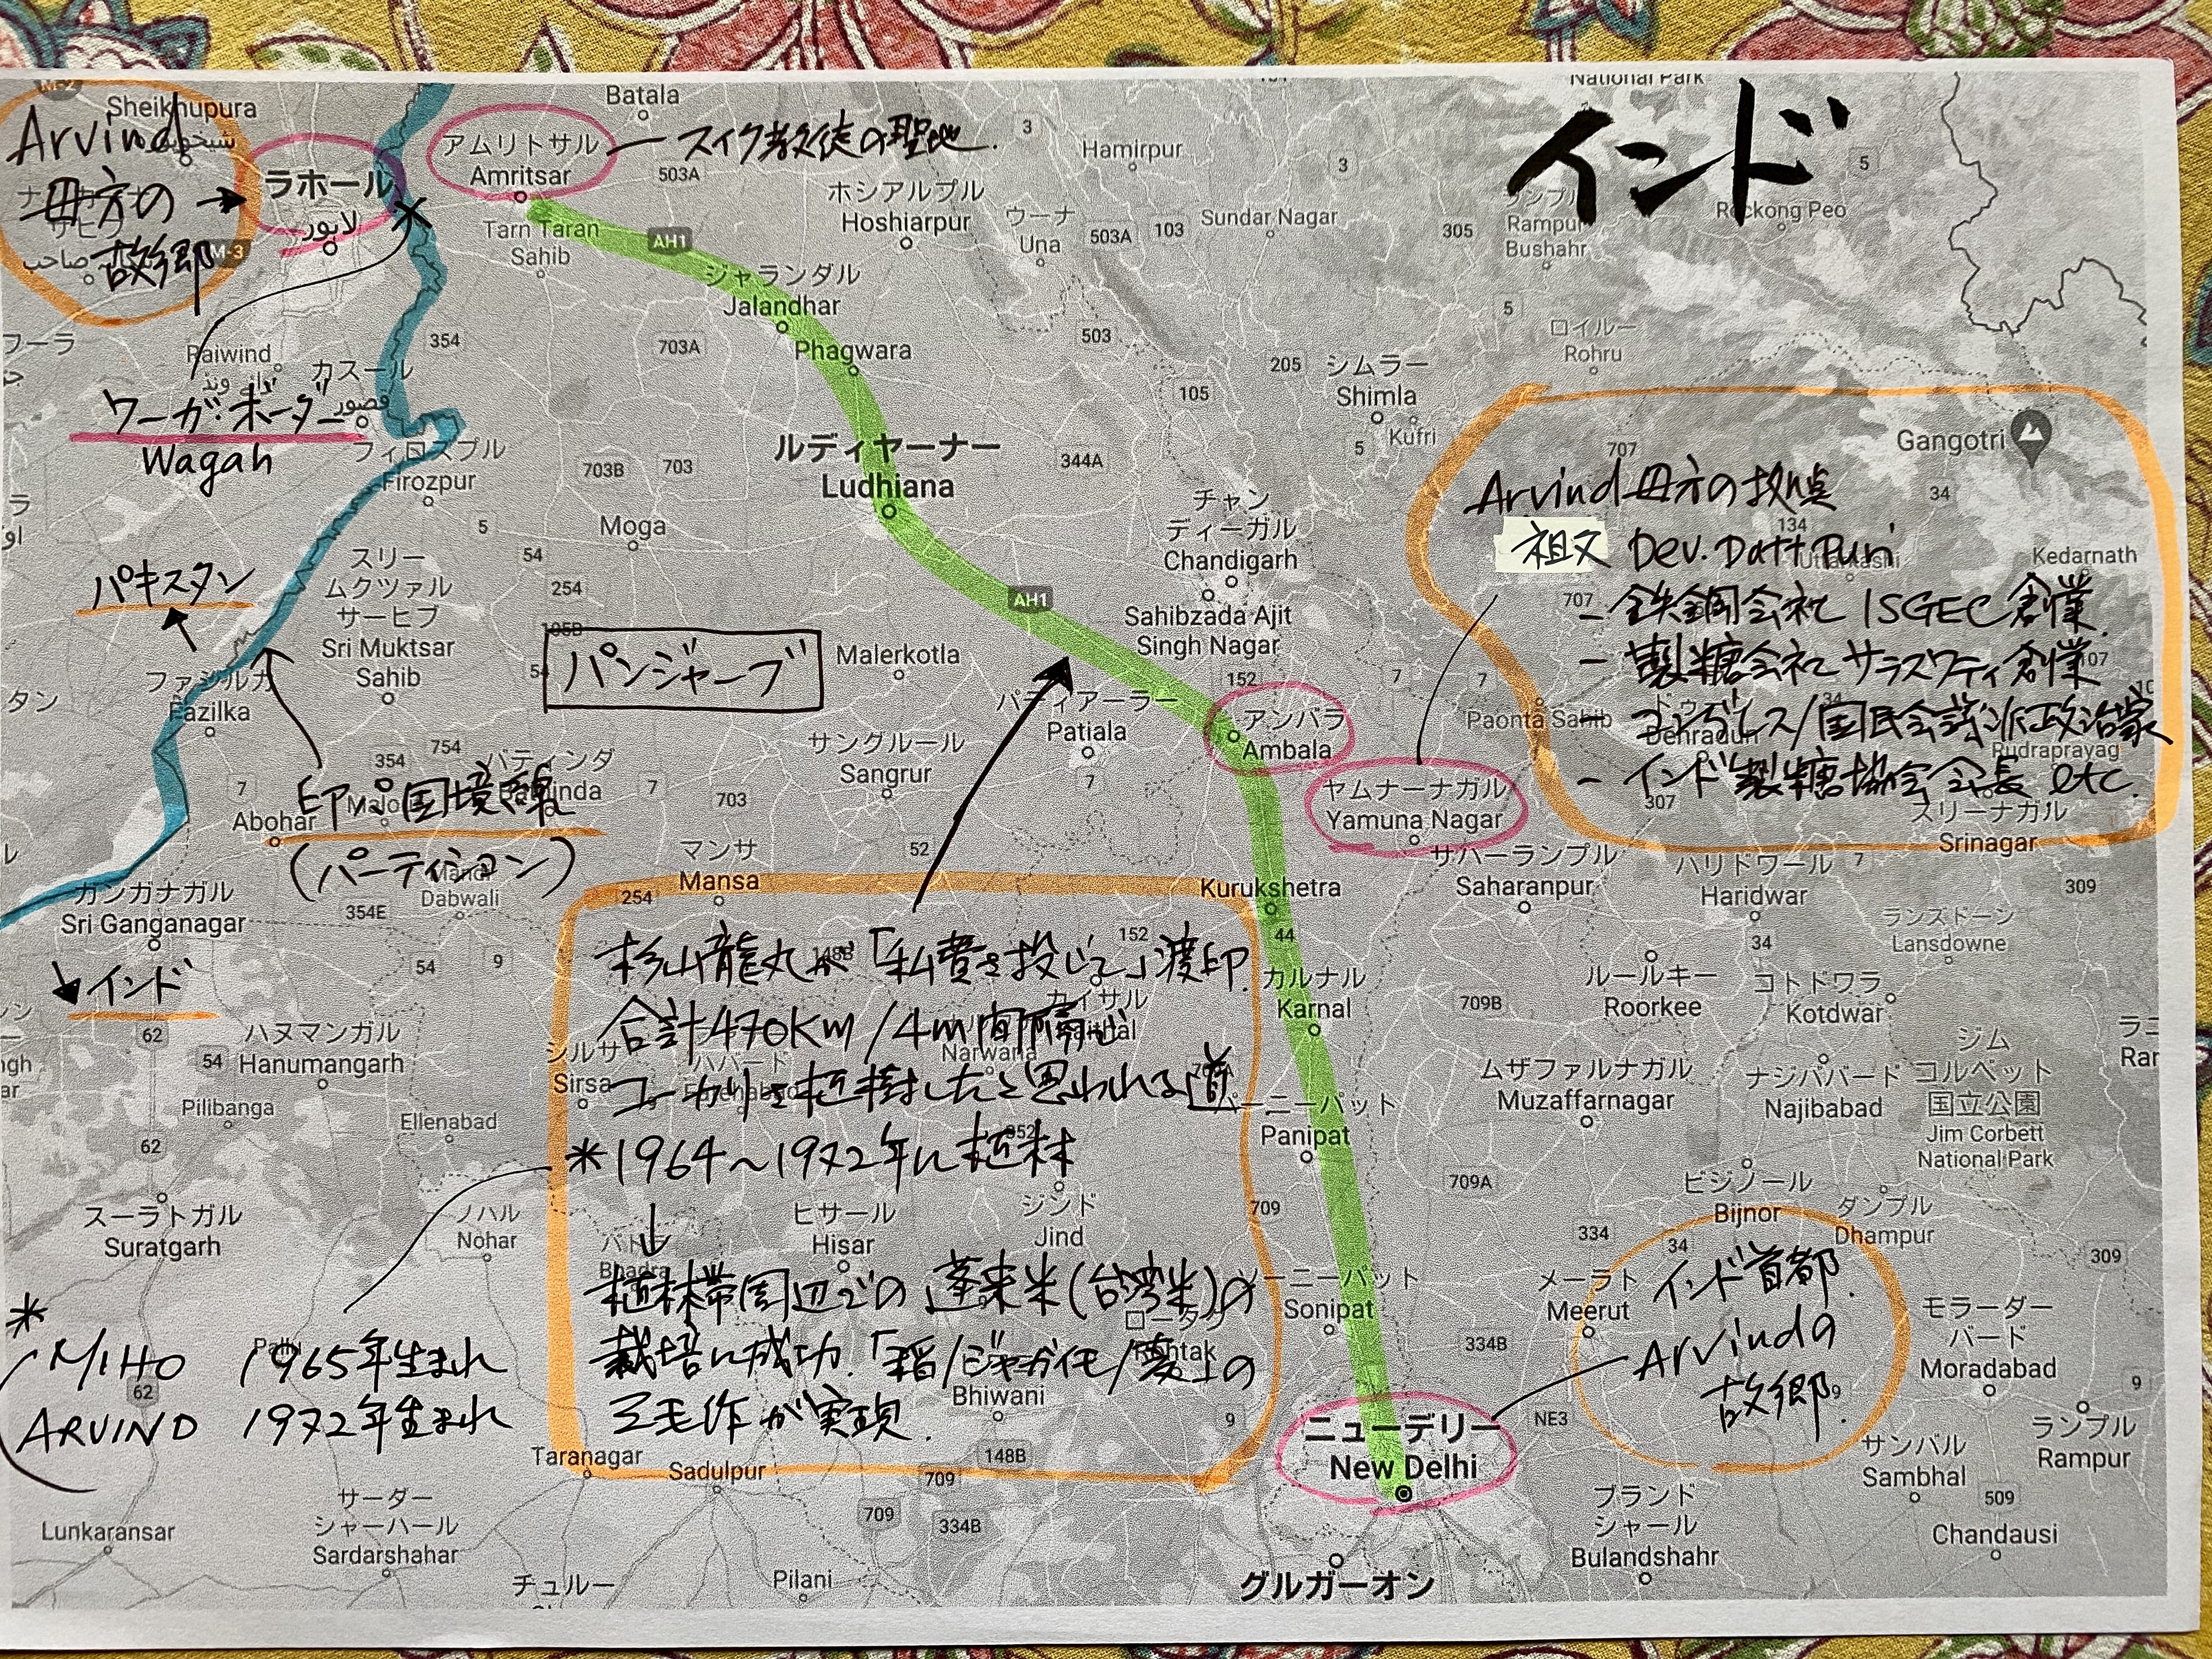 インド
National Park
Sheikhupura
Batala
Arvind
母方の
故郷
→
M-3
ラホール
لاہور
アムリトサル
Amritsar
スィク教徒の聖地.
503A
3
Hamirpur
3
5
Tarn Taran
Sahib
AH1
ホシアルプル
Hoshiarpur
ウーナ
Una
503A
103
Sundar Nagar
305
Rampur
Bushahr
Reckong Peo
ジャランダル
Jalandhar
Phagwara
354
703A
503
105
205
5
ロイルー
Rohru
Raiwind
カスール
قصور
ワーガ・ボーダー
Wagah
フィロズプル
Firozpur
シムラー
Shimla
Kufri
5
ルディヤーナー
Ludhiana
703B
703
344A
707
Gangotri
34
Arvind 母方の拠点
祖父 Dev. Datt Puri
134
Uttarkashi
Kedarnath
707
- 鉄鋼会社 ISGEC 創業.
- 製糖会社 サラスワティ創業
- コングレス/国民会議派政治家
- インド製糖協会会長 etc.
107
34
Dehradun
Rudraprayag
307
スリーナガル
Srinagar
5
Moga
54
254
チャン
ディーガル
Chandigarh
AH1
Sahibzada Ajit
Singh Nagar
パキスタン
スリー
ムクツァル
サーヒブ
Sri Muktsar
Sahib
105B
54
パンジャーブ
Malerkotla
152
7
7
Paonta Sahib
ファジルカ
Fazilka
パティアーラー
Patiala
7
アンバラ
Ambala
ヤムナーナガル
Yamuna Nagar
サングルール
Sangrur
354
754
バティンダ
7
703
7
Abohar
印パ国境線
(パーティション)
Dabwali
52
マンサ
Mansa
254
354E
Kurukshetra
サハーランプル
Saharanpur
ハリドワール
Haridwar
7
309
ガンガナガル
Sri Ganganagar
インド
54
9
62
152
44
杉山龍丸が「私費を投じて」渡印.
合計470Km/4m間隔で
ユーカリを植樹したと思われる道
*1964~1972年に植林
↓
植林帯周辺での蓬莱米(台湾米)の
栽培に成功.「稲/ジャガイモ/麦」の
三毛作が実現.
カイサル
Narwana
シルサ
Sirsa
カルナル
Karnal
709B
ルールキー
Roorkee
34
ランズドーン
Lansdowne
コトドワラ
Kotdwar
ハヌマンガル
Hanumangarh
54
Pilibanga
Ellenabad
62
Panipat
ムザファルナガル
Muzaffarnagar
ナジババード
Najibabad
ジム
コルベット
国立公園
Jim Corbett
National Park
709A
スーラトガル
Suratgarh
ノハル
Nohar
Bhadra
ヒサール
Hisar
ジンド
Jind
709
ビジノール
Bijnor
ダンプル
Dhampur
334
34
309
Sonipat
334B
メーラト
Meerut
インド首都.
Arvindの
故郷.
9
モラーダー
バード
Moradabad
9
ランプル
Rampur
*
MIHO 1965年生まれ
ARVIND 1972年生まれ
62
Bhiwani
9
148B
709
NE3
ニューデリー
New Delhi
Taranagar
Sadulpur
サンバル
Sambhal
709
334B
Lunkaransar
サーダー
シャーハール
Sardarshahar
チュルー
Pilani
グルガーオン
ブランド
シャール
Bulandshahr
509
Chandausi